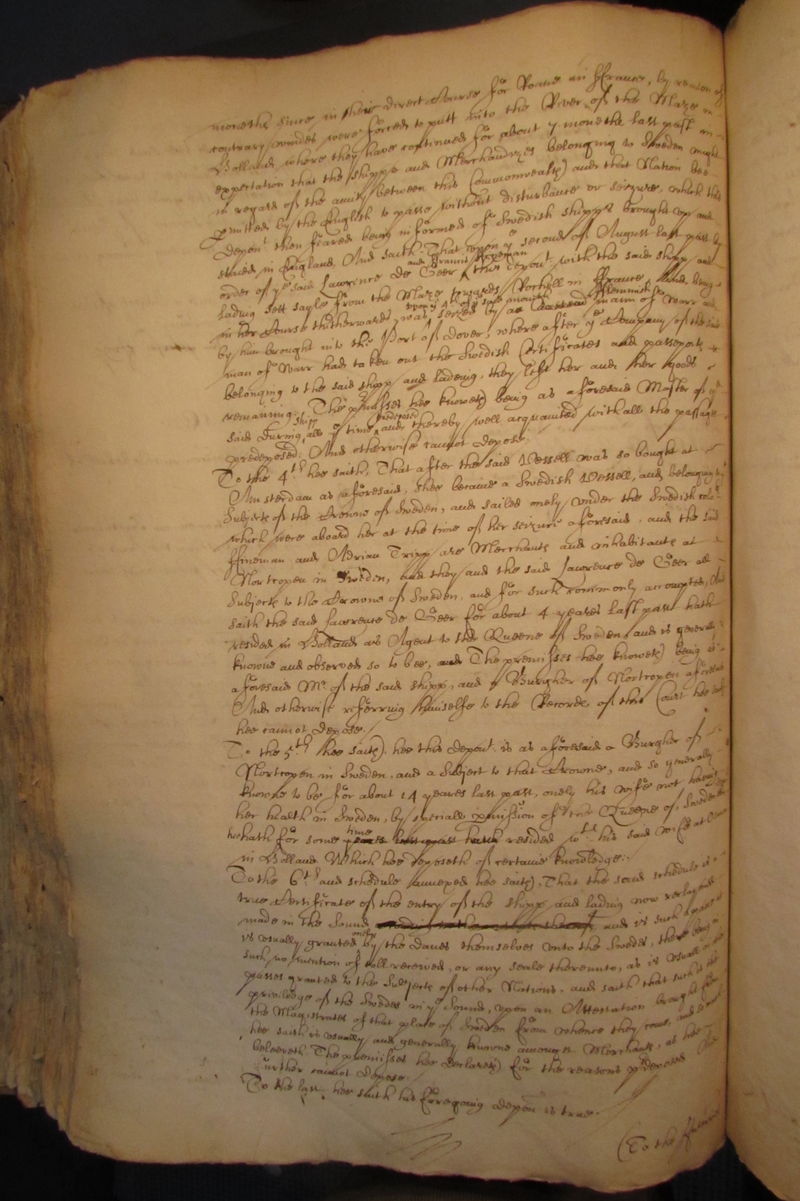 moneths since in their direct Course for Roane in ffrance, by reason of
contrary windes were forced to putt into the River of the Maze in
Holland, where they have continued for about 7 moneths last past in
expectation that the shipps and Merchandizes belonging to Sweden might
in regard of the amity between this Commonwealth and that Nation bee
permitted by the English to passe without disturbance or seizure, which this
depont then feared being informed of Swedish shipps brought upp and
stayed in England, And saith That upon ye second of August last past by
order of ye said Lawrence de Geer and ffrancis ffineman this depont with the said shipp and
lading sett sayle from the Maze towards Rochell in ffrance, And being
in her Course thitherwards upon ye 4th of ye same moneth was seized by a fflemmish man of Warr and
by him brought into the Port of Dover, where after ye Company of the said
man of Warr had taken out the Swedish Certificates and passeports
belonging to the said shipp and ladeing, they left her and her goods
remaining. The premisses hee knoweth being as aforesaid Master of ye
said shipp during all ye time predeposed and thereby well acquainted with all the passages
predeposed. And otherwise cannot depose.
To the 4th. hee saith, That after the said Vessell was so bought at
Amsterdam as aforesaid, shee became a Swedish Vessell, and belonging to
Subjects of the Crowne of Sweden, and sailed onely under the Swedish
which were aboard her at the time of her seizure aforesaid, and the said
ffineman and Adrian Tripp are Merchants and inhabitants at
Nortropen in Sweden, and they and the said Lawrence de Geer all
Subjects to the Crowne of Sweden, and for such commonly accounted, And
saith the said Lawrence de Geer for about 4 yeares last past hath
resided in Holland as Agent to the Queene of Sweden and is generally
knowne and observed so to bee, and The premisses hee knoweth being as
aforesaid Mr. of the said shipp, and a Burgher of Nortropen aforesaid
And otherwise referring himselfe to the Records of this Court hee saith
hee cannot depose.
To the 5th hee saith, hee this depont. is as aforesaid a Burgher of
Nortropen in Sweden, and a Subject to that Crowne, and so generally
knowne to be for about 14 yeares last past, onely his wife not having
her health in Sweden, by speciall permission of the Queene of Sweden
hee hath for some time resided with his said wife at
in Holland Which hee deposeth of certaine knowledge.
To the 6th. and schedule annexed hee saith, That the said schedule is a
true Certificate of the entry of the shipp and lading now
made in the Sound and is such a
is usually granted onely by the Danes themselves unto the Swedes, there being in
such no mention of toll received, or any seale thereunto, as is usuall in
passes granted to the Subjects of other Nations, and saith that such is the
priviledge of the Swedes in ye Sound, upon an Attestation brought from
the Magistrates of that place of Sweden from whence they come, and so much
hee saith is usually and generally knowne amongst Merchants, as hee
beleeveth The premisses hee declareth for the reasons predeposed And
further cannot depose.
To the last. hee saith his foregoing depon is true.
(To the